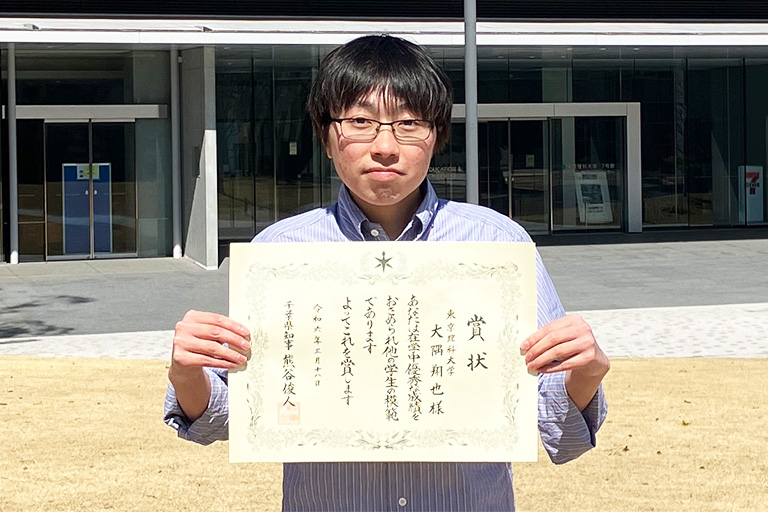 賞状
東京理科大学
大隅翔也様
あなたは在学中優秀な成績を
おさめられ他の学生の模範
であります
よってこれを賞します
令和六年三月十八日
千葉県知事 熊谷俊人